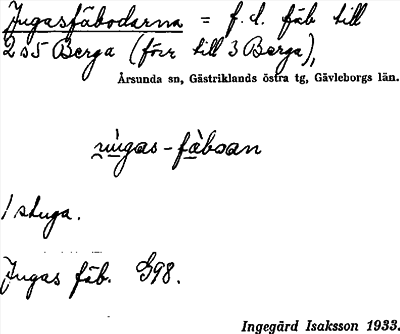 Jugasfäbodarna = f.d. fäb till
2 o 5 Berga (förr till 3 Berga),
Årsunda sn, Gästriklands östra tg, Gävleborgs län.
-fàbsan
1 stuga.
Jugas fäb. G98.
Ingegärd Isaksson 1933.